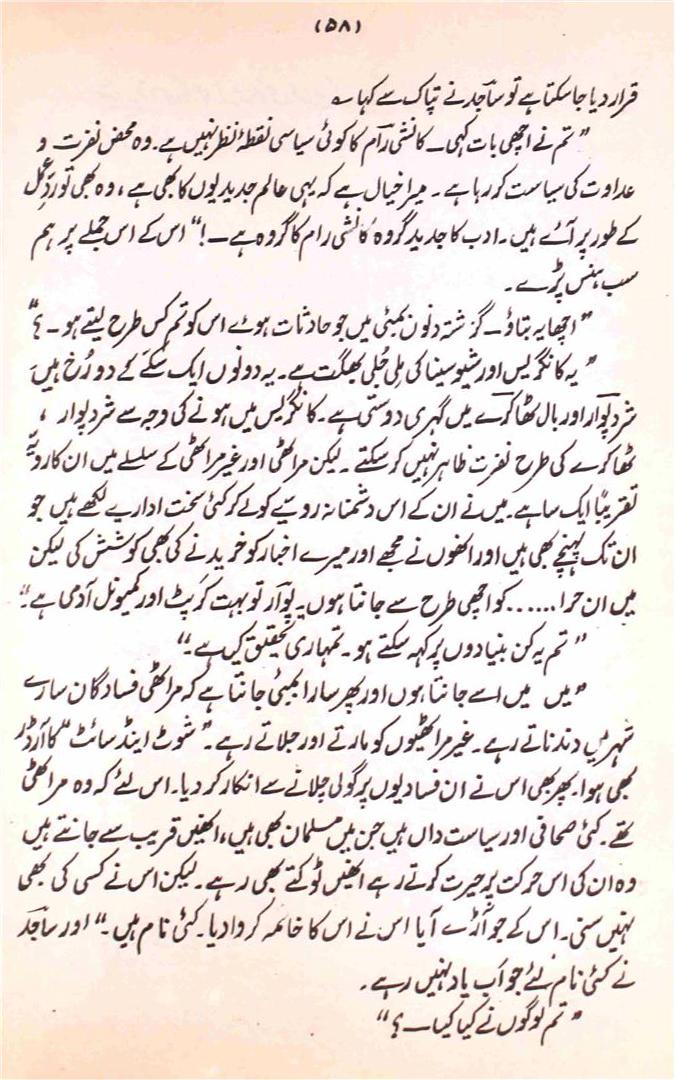 (۵۸)
قرار دیا جاسکتا ہے تو ساجد نے تپاک سے کہا۔
”تم نے اچھی بات کہی۔ کانشی رام کا کوئی سیاسی نقطۂ نظر نہیں ہے۔ وہ محض نفرت و
عداوت کی سیاست کر رہا ہے۔ میرا خیال ہے کہ یہی عالم جدیدیوں کا بھی ہے، وہ بھی تو ردِّعمل
کے طور پر آئے ہیں۔ ادب کا جدید گروہ کانشی رام کا گروہ ہے۔!“ اس کے اس جملے پر ہم
سب ہنس پڑے۔
”اچھا یہ بتاؤ۔ گزشتہ دنوں بمبئی میں جو حادثات ہوئے اس کو تم کس طرح لیتے ہو۔؟“
”یہ کانگریس اور شیوسینا کی ملی جلی بھگت ہے۔ یہ دونوں ایک سکّے کے دو رُخ ہیں۔
شرد پوار اور بال ٹھاکرے میں گہری دوستی ہے۔ کانگریس میں ہونے کی وجہ سے شرد پوار،
ٹھاکرے کی طرح نفرت ظاہر نہیں کر سکتے۔ لیکن مراٹھی اور غیر مراٹھی کے سلسلے میں ان کا رویّہ
تقریباً ایک سا ہے۔ میں نے ان کے اس دشمنانہ رویّے کو لے کر کئی سخت اداریے لکھے ہیں جو
ان تک پہنچے بھی ہیں اور انھوں نے مجھے اور میرے اخبار کو خریدنے کی بھی کوشش کی لیکن
میں ان حرا...... کو اچھی طرح سے جانتا ہوں۔ پوار تو بہت کرپٹ اور کمیونل آدمی ہے۔“
”تم یہ کن بنیادوں پر کہہ سکتے ہو۔ تمہاری تحقیق کیا ہے۔“
”میں میں اسے جانتا ہوں اور پھر سارا بمبئی جانتا ہے کہ مراٹھی فسادگان سارے
شہر میں دندناتے رہے۔ غیر مراٹھیوں کو مارتے اور جلاتے رہے۔ ”شوٹ اینڈ سائٹ“ کا آرڈر
بھی ہوا۔ پھر بھی اس نے ان فسادیوں پر گولی چلانے سے انکار کر دیا۔ اس لئے کہ وہ مراٹھی
تھے۔ کئی صحافی اور سیاست داں ہیں جن میں مسلمان بھی ہیں، انھیں قریب سے جانتے ہیں
وہ ان کی اس حرکت پر حیرت کرتے رہے انھیں ٹوکتے بھی رہے۔ لیکن اس نے کسی کی بھی
نہیں سنی۔ اس کے جو آڑے آیا اس نے اس کا خاتمہ کروا دیا۔ کئی نام ہیں۔“ اور ساجد
نے کئی نام لئے جو اب یاد نہیں رہے۔
”تم لوگوں نے کیا کیا۔؟“